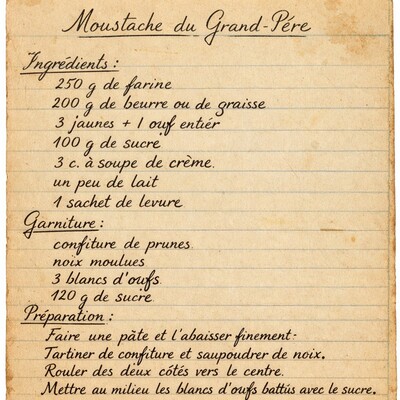 Moustache du Grand-Pére
Ingrédients :
250 g de farine
200 g de beurre ou de graisse
3 jaunes + 1 ouf entiér
100 g de sucre
3 c. à soupe de crème.
un peu de lait
1 sachet de levure
Garniture :
confiture de prunes.
noix moulues
3 blancs d'oufs.
120 g de sucre
Préparation :
Faire une pâte et l'abaisser finement-
Tartiner de confiture et saupoudrer de noix.
Rouler des deux côtés vers le centre.
Mettre au milieu les blancs d'oufs battús avec le sucre.